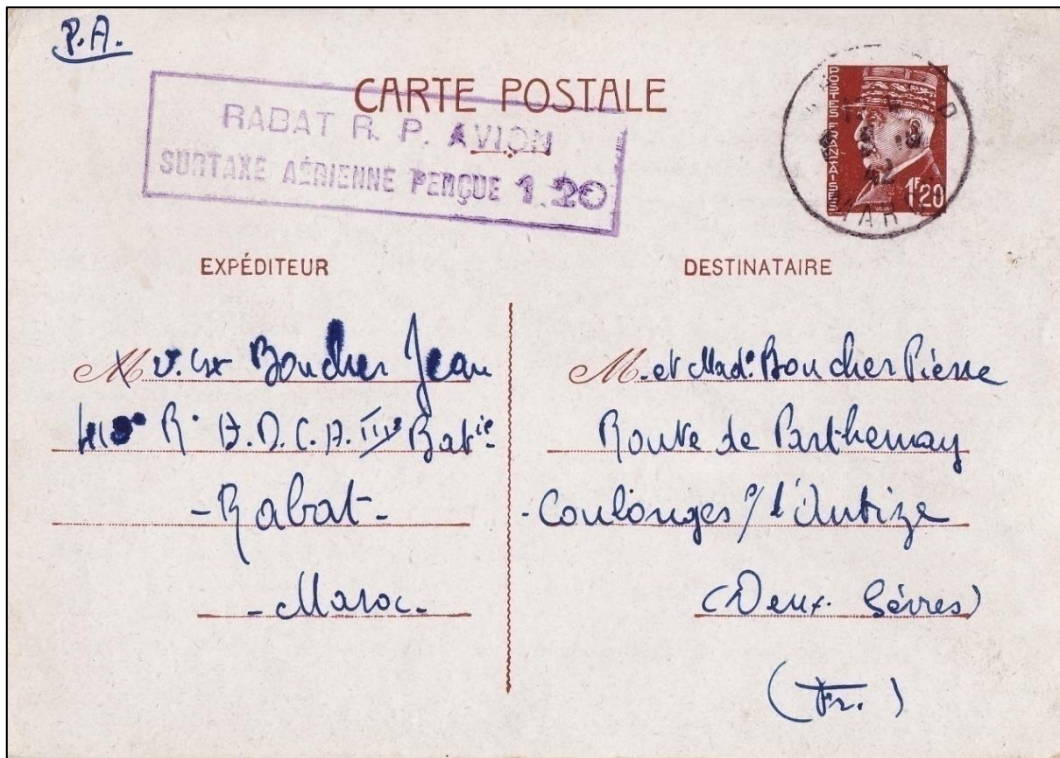 P.A.
CARTE POSTALE
RABAT R. P. AVION
SURTAXE AÉRIENNE PERÇUE 1.20
POSTES FRANÇAISES
1F20
42
EXPÉDITEUR
M Boucher Jean
R A.D.C.A. Batie
- Rabat -
- Maroc -
DESTINATAIRE
M. et Made Boucher Pierre
Route de Parthenay
- Coulonges s/ l'Autize
(Deux. Sèvres)
(Fr.)